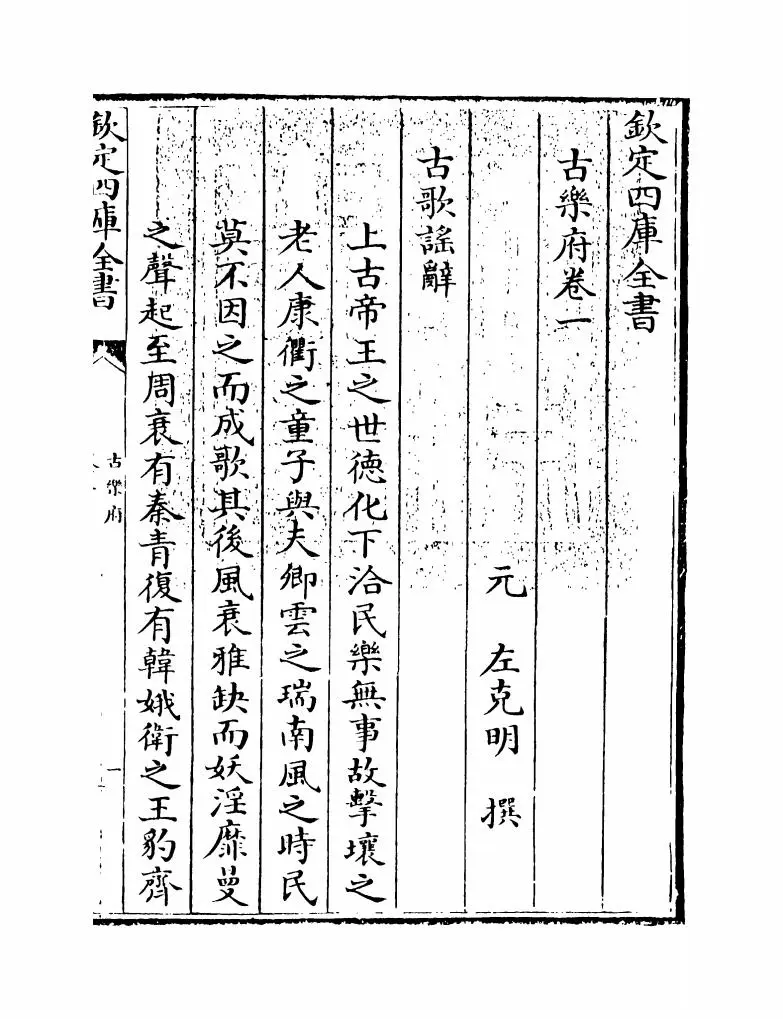 欽定四庫全書
古樂府卷一
元　左克明　撰
古歌謡辭
上古帝王之世德化下洽民樂無事故擊壤之
老人康衢之童子與夫卿雲之瑞南風之時民
莫不因之而成歌其後風衰雅缺而妖淫靡蔓
之聲起至周衰有秦青復有韓娥衛之王豹齊
欽定四庫全書
古樂府
一